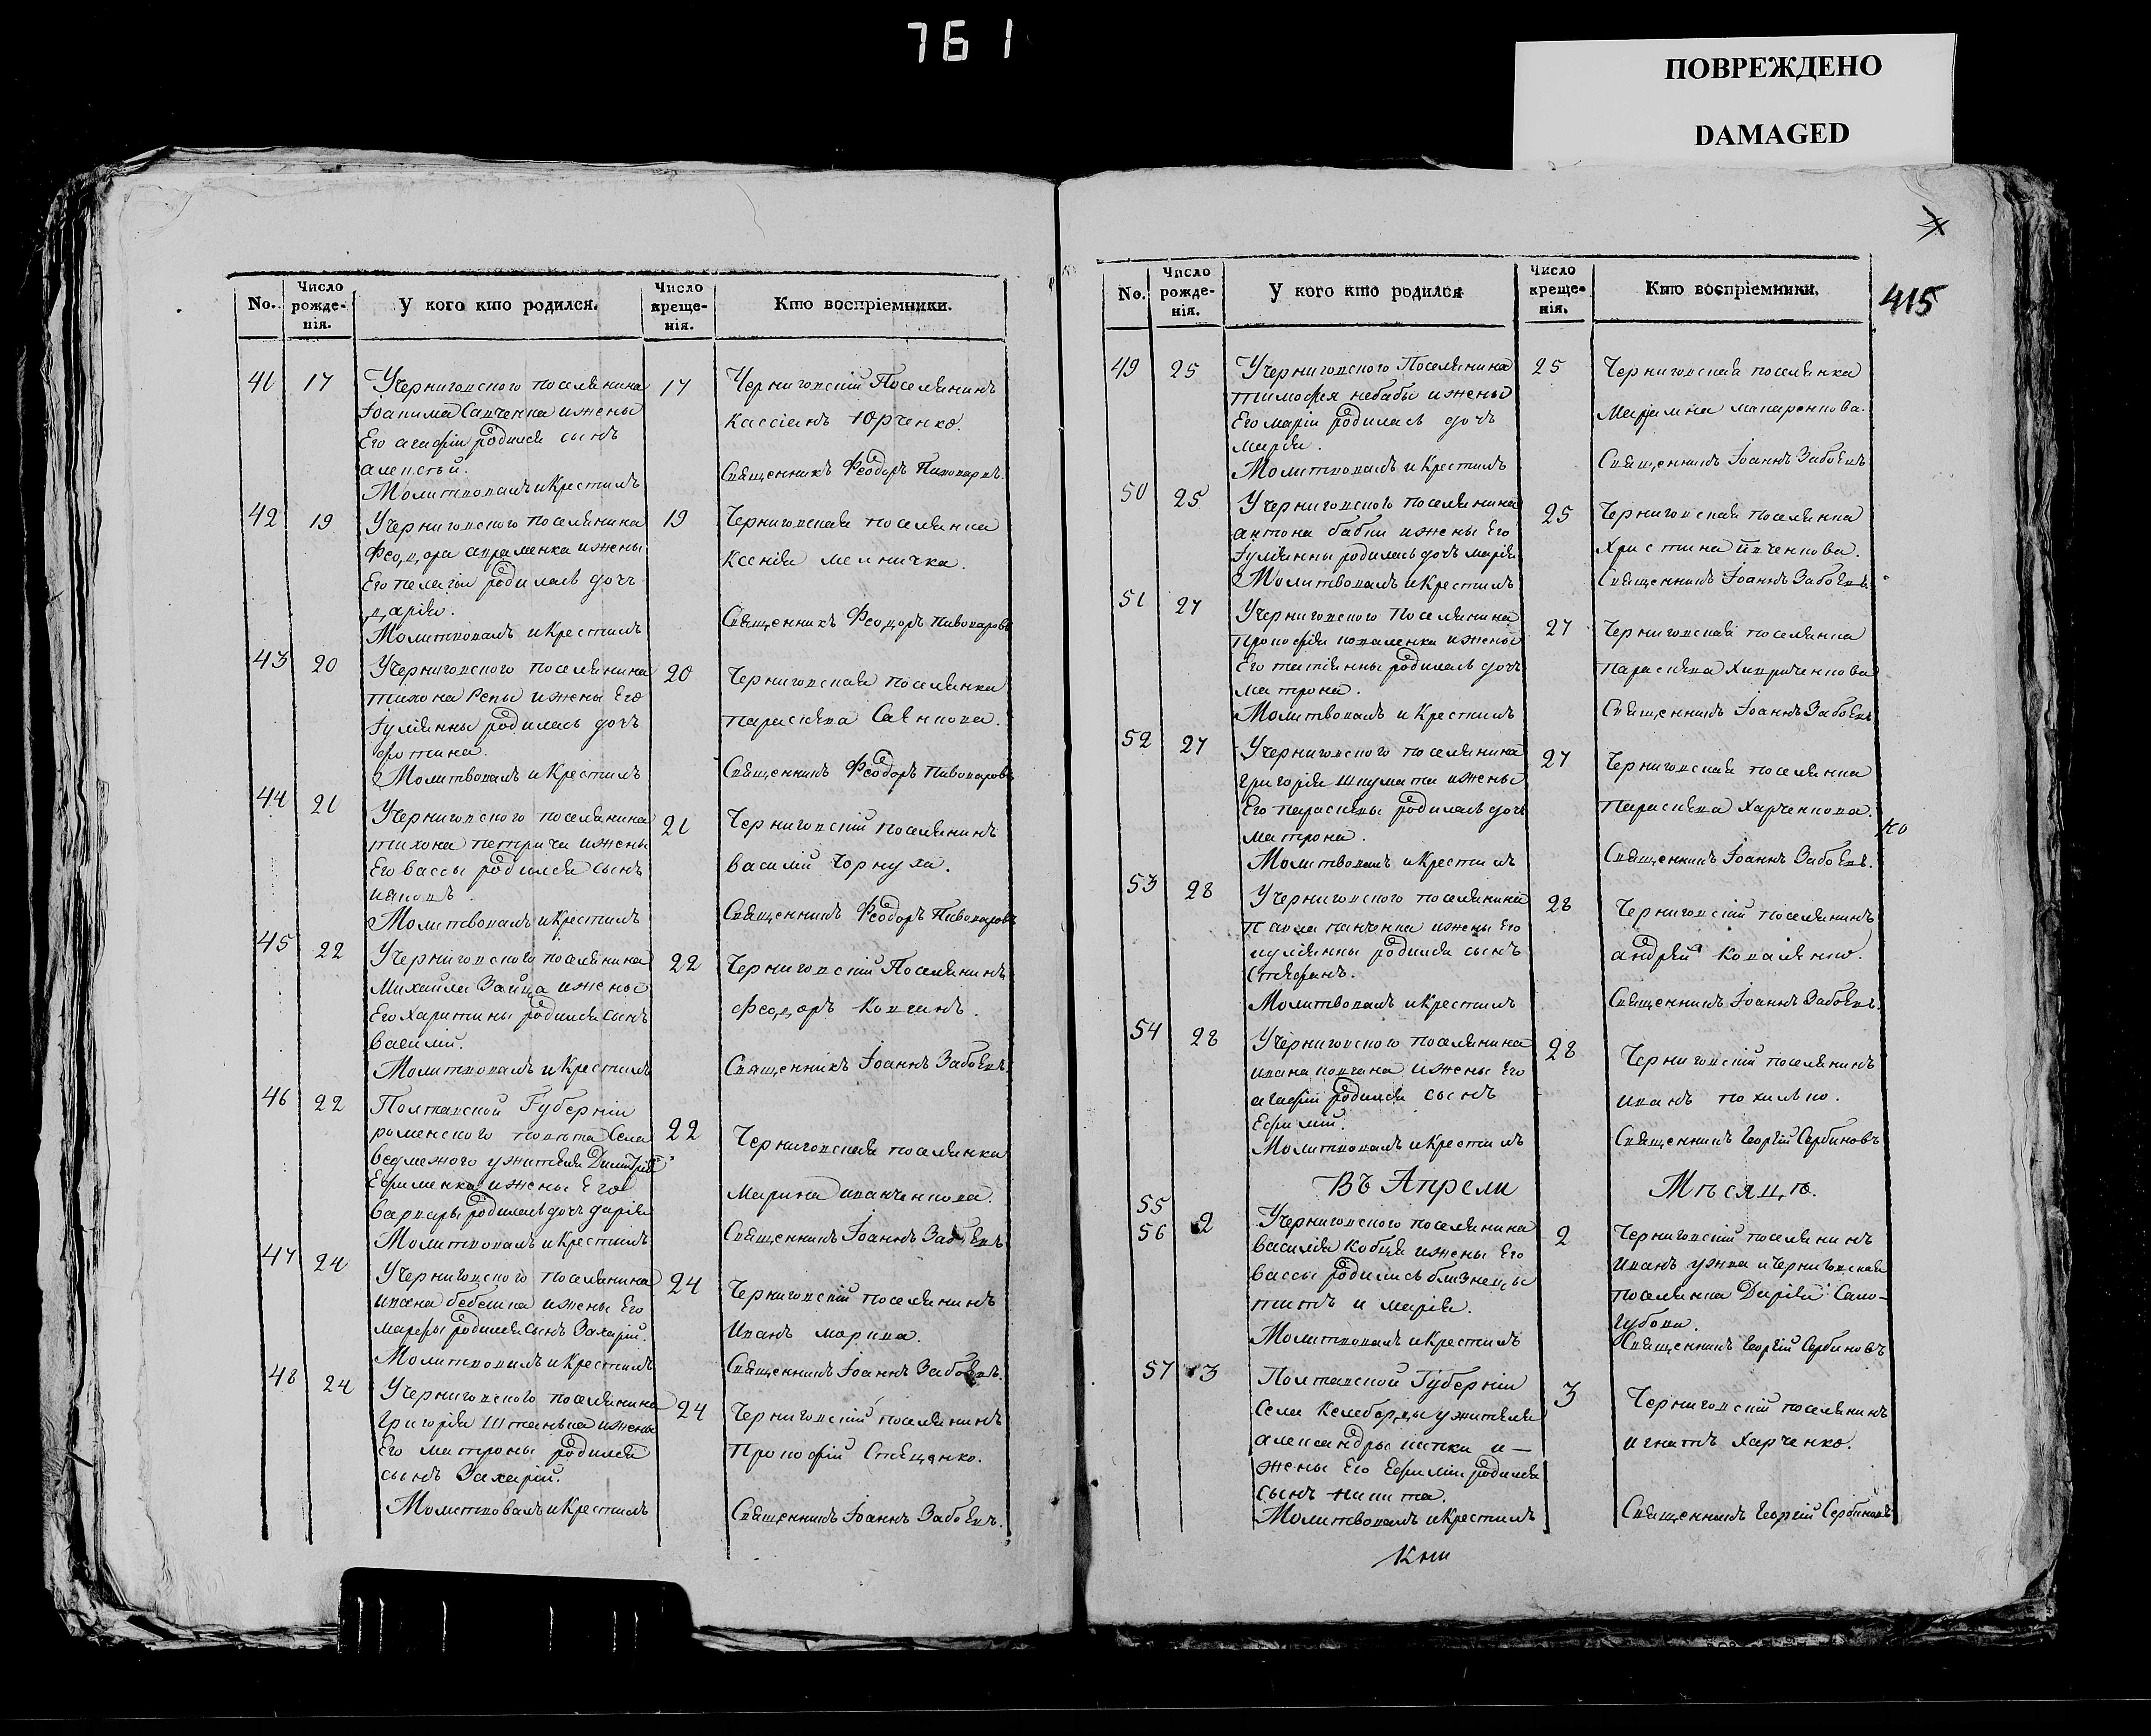 761
ПОВРЕЖДЕНО
DAMAGED
415
No.
Число рожде-нія.
У кого кто родился.
Число креще-нія.
Кто воспріемники.
41 17
Учерниговского поселянина
Іоакима Савченка ижены
Его агафіи родился сынъ
алексѣй.
Молитвовалъ и Крестилъ
17
Черниговскій Поселянинъ
Кассіанъ Юрченко.
Священникъ Феодоръ Пивоваровъ
42 19
Учерниговского поселянина
Феодора авраменка ижены
Его пелагіи родилась дочь
дарія.
Молитвовалъ и Крестилъ
19
Черниговская поселянка
Ксенія мелничка.
Священникъ Феодоръ Пивоваровъ
43 20
Учерниговского поселянина
тихона Репы ижены Его
Іуліянны родилась дочь
фотина.
Молитвовалъ и Крестилъ
20
Черниговская поселянка
параскева
Священникъ Феодоръ Пивоваровъ
44 21
Учерниговского поселянина
тихона петрича ижены
Его вассы родился сынъ
ияковъ.
Молитвовалъ и Крестилъ
21
Черниговскій поселянинъ
василій Чорнуха.
Священникъ Феодоръ Пивоваровъ
45 22
Учерниговского поселянина
Михаила Зайца ижены
Его харитины родился сынъ
василій.
Молитвовалъ и Крестилъ
22
Черниговскій Поселянинъ
Феодоръ Ковчинъ.
Священникъ Іоаннъ Забоевъ
46 22
Полтавской Губерніи
роменского повѣта Села
ведмежого ужителя Димитрія
Ефименка ижены Его
варвары родилась дочь дарія
Молитвовалъ и Крестилъ
22
Черниговская поселянка
Марина иванченкова.
Священникъ Іоаннъ Забоевъ
47 24
Учерниговского поселянина
ивана бебешка ижены Его
марфы родился сынъ Захарій.
Молитвовалъ и Крестилъ
24
Черниговскій поселянинъ
Иванъ марика.
Священникъ Іоаннъ Забоевъ.
48 24
Учерниговского поселянина
григорія Штанька ижены
Его матроны родился
сынъ Захарій.
Молитвовалъ и Крестилъ
24
Черниговскій поселянинъ
Прокофій Стеценко.
Священникъ Іоаннъ Забоевъ.
No.
Число рожде-нія.
У кого кто родился
Число креще-нія.
Кто воспріемники.
49 25
Учерниговского Поселянина
тимофея небабы ижены
Его маріи родилась дочь
марія.
Молитвовалъ и Крестилъ
25
Черниговская поселянка
Марина макаренкова.
Священникъ Іоаннъ Забоевъ
50 25
Учерниговского поселянина
антона бабки ижены Его
Іуліянны родилась дочь марія
Молитвовалъ и Крестилъ
25
Черниговская поселянка
Христина ивченкова.
Священникъ Іоаннъ Забоевъ.
51 27
Учерниговского Поселянина
Прокофія коваленка ижены
Его татіянны родилась дочь
матрона.
Молитвовалъ и Крестилъ
27
Черниговская поселянка
параскева
Священникъ Іоаннъ Забоевъ
52 27
Учерниговского поселянина
григорія шкумата ижены
Его параскевы родилась дочь
матрона.
Молитвовалъ и Крестилъ
27
Черниговская поселянка
параскева Харченкова.
Священникъ Іоаннъ Забоевъ.
53 28
Учерниговского поселянина
павла панченка ижены Его
иуліянны родился сынъ
Стефанъ.
Молитвовалъ и Крестилъ
28
Черниговскій поселянинъ
андрей Коваленко.
Священникъ Іоаннъ Забоевъ.
54 28
Учерниговского поселянина
ивана ковчина ижены Его
агафіи родился сынъ
Ефимій.
Молитвовалъ и Крестилъ
28
Черниговскій поселянинъ
иванъ похилько.
Священникъ Георгій Сербиновъ
Въ Апрели
Мѣсяцѣ.
55
56 2
Учерниговского поселянина
василія кобця ижены Его
вассы родились близнецы
титъ и марія.
Молитвовалъ и Крестилъ
2
Черниговскій поселянинъ
иванъ ужва и Черниговская
поселянка Дарія Само-
губова.
Священникъ Георгій Сербиновъ
57 3
Полтавской Губерніи
Села Келеборды ужителя
александры ...
жены Его Ефиміи родился
сынъ никита.
Молитвовалъ и Крестилъ
3
Черниговскій поселянинъ
игнатъ Харченко.
Священникъ Георгій Сербиновъ